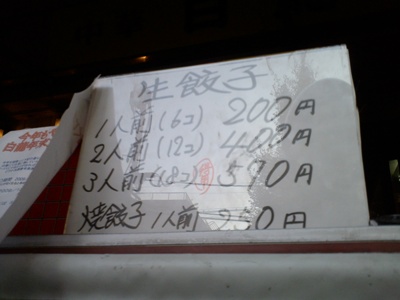 生餃子
1人前(6コ) 200円
2人前(12コ) 400円
3人前(18コ) 590円
焼餃子 1人前 250円
今年も